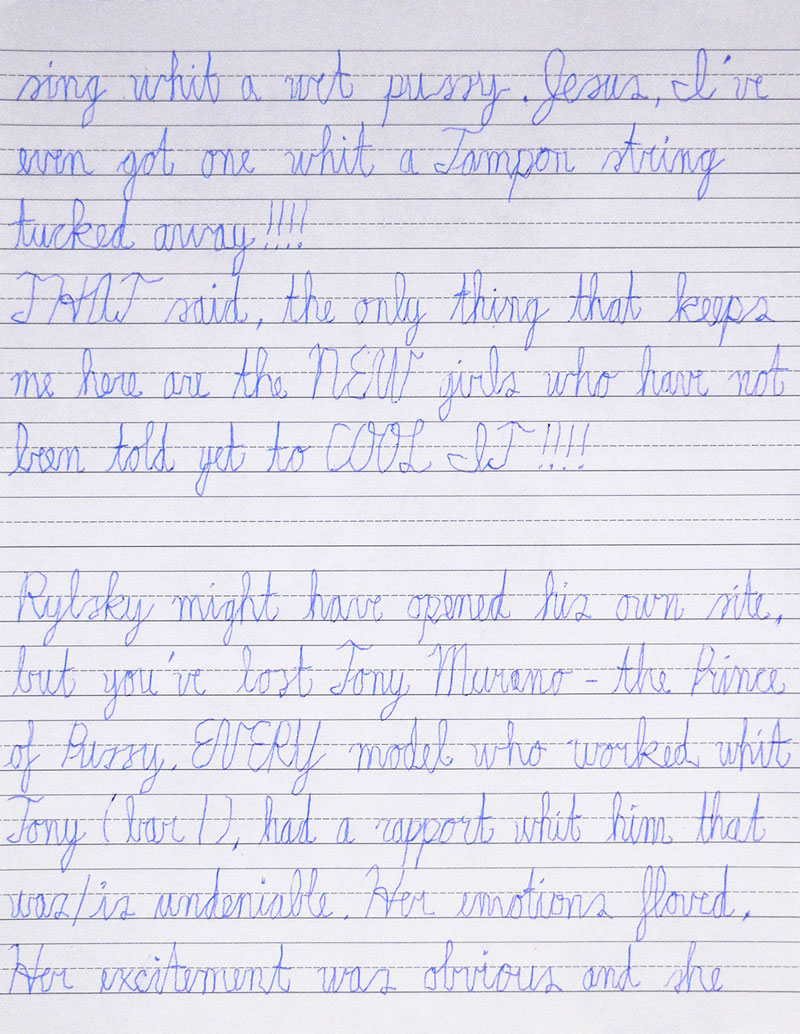 sing whit a wet pussy. Jesus, I've
even got one whit a Tampon string
tucked away!!!!
THAT said, the only thing that keeps
me here are the NEW girls who have not
been told yet to COOL IT!!!!
Rylsky might have opened his own site,
but you've lost Tony Murano - the Prince
of Pussy. EVERY model who worked whit
Tony (bar 1), had a rapport whit him that
was/is undeniable. Her emotions floved.
Her excitement was obvious and she